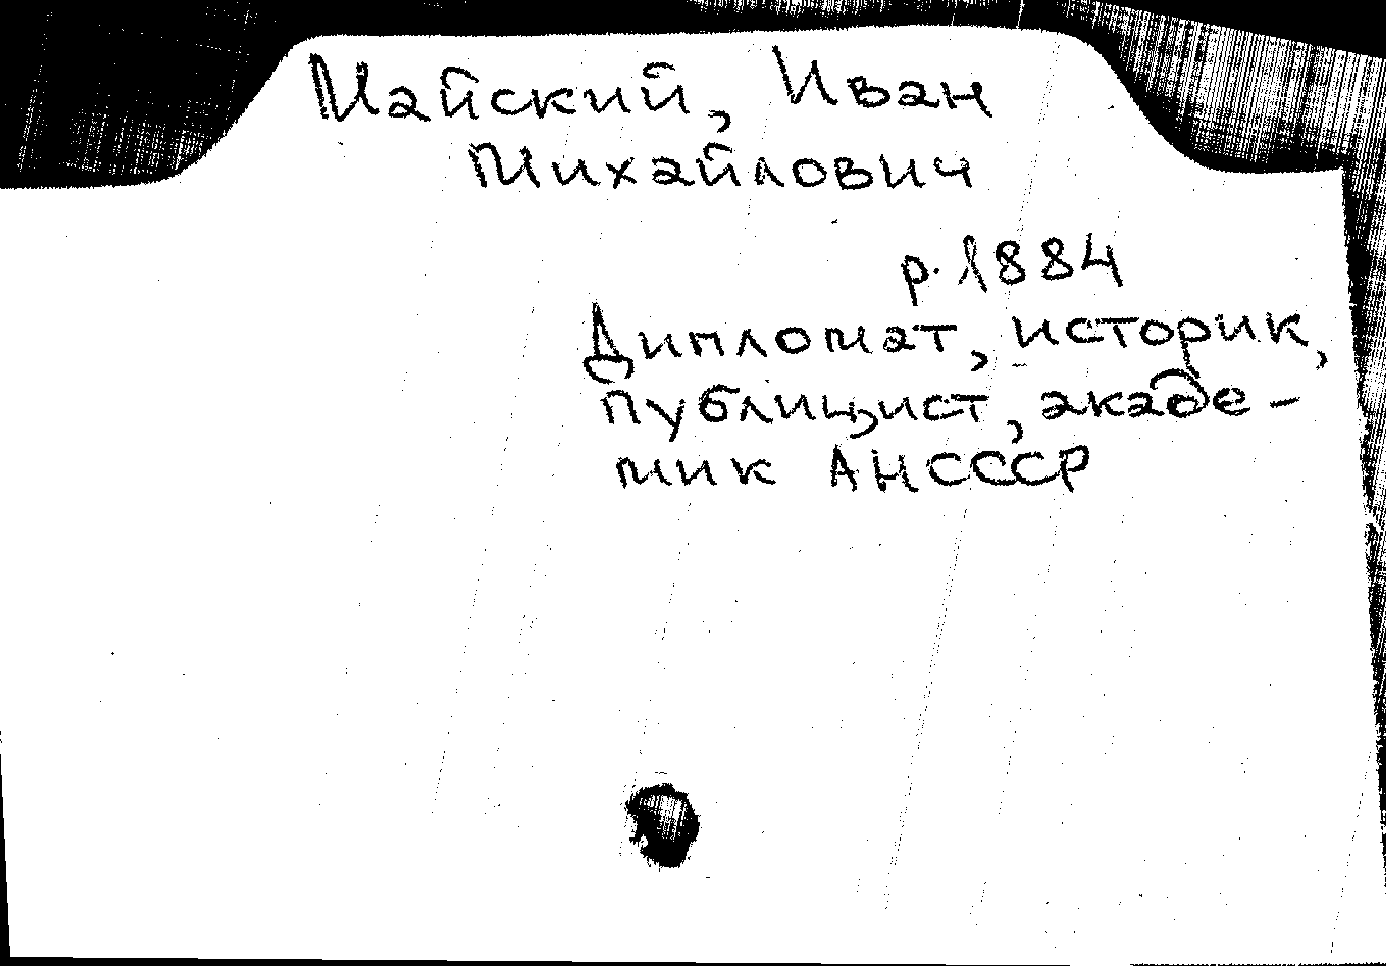 Майский, Иван
Михайлович
р. 1884
Дипломат, историк,
публицист, акаде-
мик АН СССР